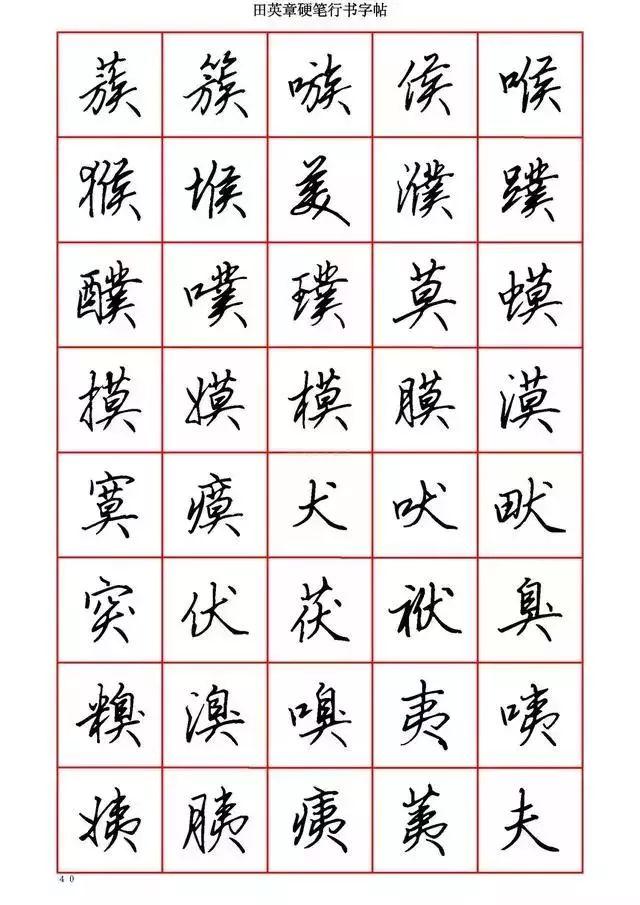 田英章硬笔行书字帖
蔟簇嗾侯喉
猴堠美濮蹼
醭噗璞莫蟆
摸嫫模膜漠
寞瘼犬吠畎
突伏茯袱臭
糗溴嗅夷咦
姨胰痍荑夫
40